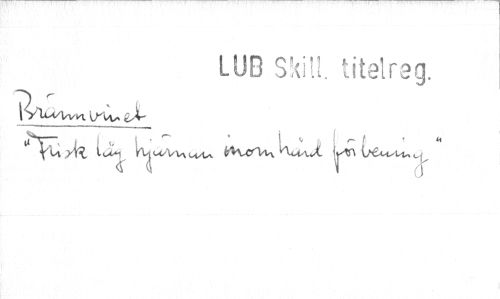 LUB Skill. titelreg.
Brännvinet
"Frisk låg hjärnan inom hård förbening"